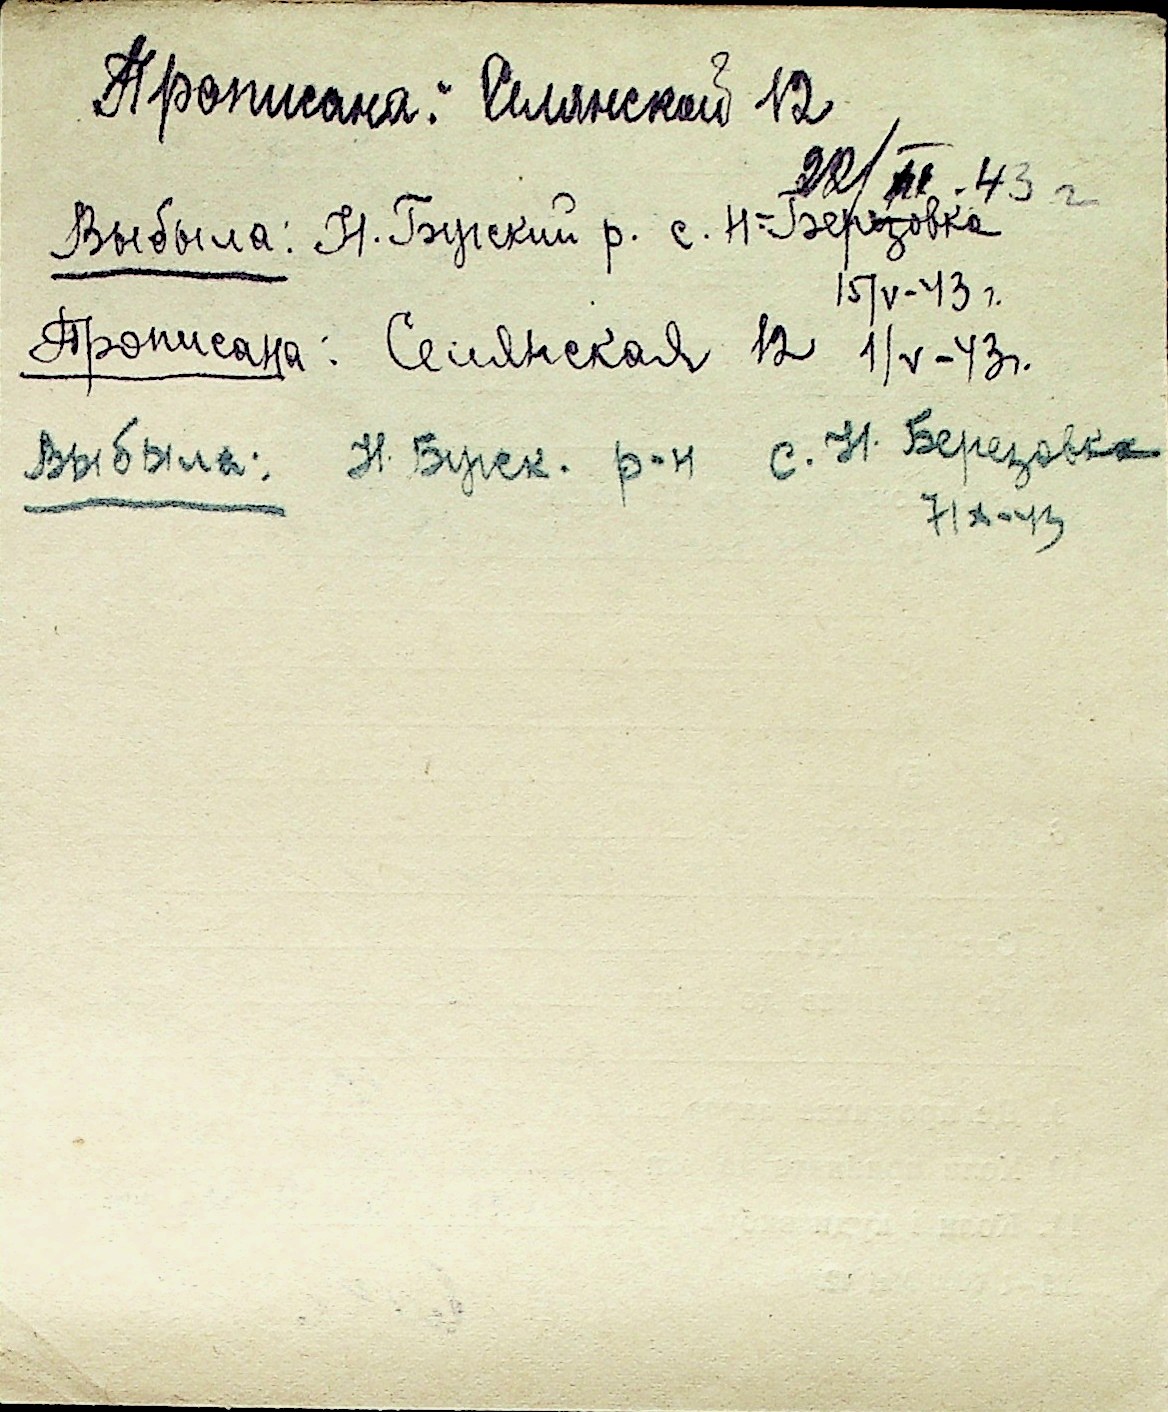 Прописана: Селянской 12
22/III-43 г
Выбыла: Н. Бугский р. с. Н=Березовка
15/V-43 г.
Прописана: Селянская 12 1/V-43г.
Выбыла: Н. Бугск. р-н с. Н. Березовка
7/X-43